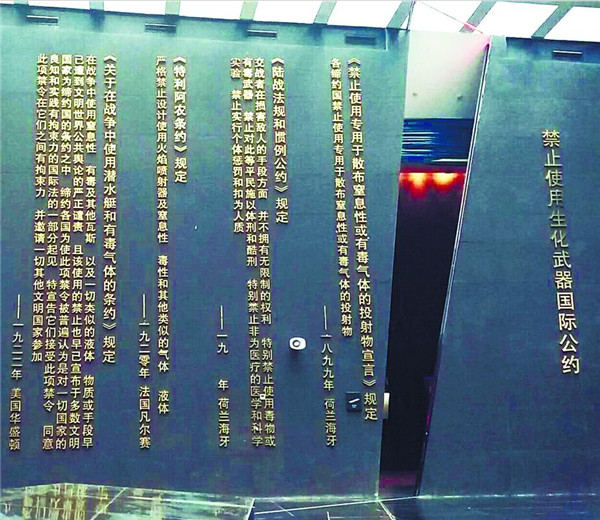 禁止使用生化武器国际公约
《禁止使用专用于散布窒息性或有毒气体的投射物宣言》规定
各缔约国禁止使用专用于散布窒息性或有毒气体的投射物
——一八九九年 荷兰海牙
《陆战法规和惯例公约》规定
交战者在损害敌人的手段方面 并不拥有无限制的权利 特别禁止使用毒物或
有毒武器 禁止对此等平民施以体刑和酷刑 特别禁止非为医疗的医学和科学
实验 禁止实行个体惩罚和扣为人质
——一九 年 荷兰海牙
《特利阿农条约》规定
严格禁止设计使用火焰喷射器及窒息性 毒性和其他类似的气体 液体
——一九二零年 法国凡尔赛
《关于在战争中使用潜水艇和有毒气体的条约》规定
在战争中使用窒息性 有毒及其他瓦斯 以及一切类似的液体 物质或手段早
已遭到文明世界公共舆论的严正谴责 且该使用的禁止也早已宣布于多数文明
国家为缔约国的条约之中 缔约各国为使此项禁令被普遍认为是对一切国家的
良知和实践有拘束力的国际法的一部分起见 特宣告它们接受此项禁令 同意
此项禁令在它们之间有拘束力 并邀请一切其他文明国家参加
——一九二二年 美国华盛顿